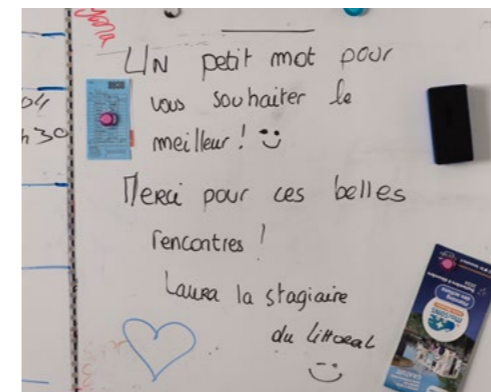 Un petit mot pour
vous souhaiter le
meilleur !
Merci pour ces belles
rencontres !
Laura la stagiaire
du littoral